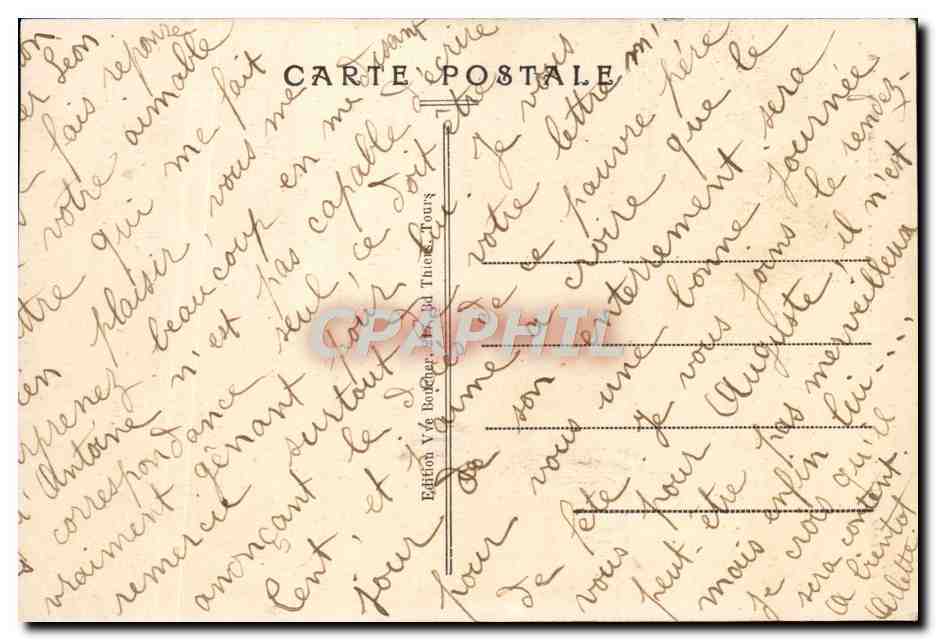 CARTE POSTALE
Léon
fais réponse
votre aimable
qui me fait
plaisir vous me
surprenez beaucoup en me disant
Antoine n'est pas capable d'écrire
correspondance seul ce doit être
vraiment gênant pour lui. Je vous
remercie surtout de votre lettre m'
annonçant le décès de ce pauvre père
Cent et j'aime à croire que le
jour de son enterrement sera
pour vous une bonne journée
de fête je vous joins le rendez-
vous pour Auguste il n'est
peut-être pas merveilleux
mais enfin lui...
je crois qu'il
sera content.
A bientôt
Arlette
Edition Vve Boucher, Bd Thiers, Tours
CPAPHIL